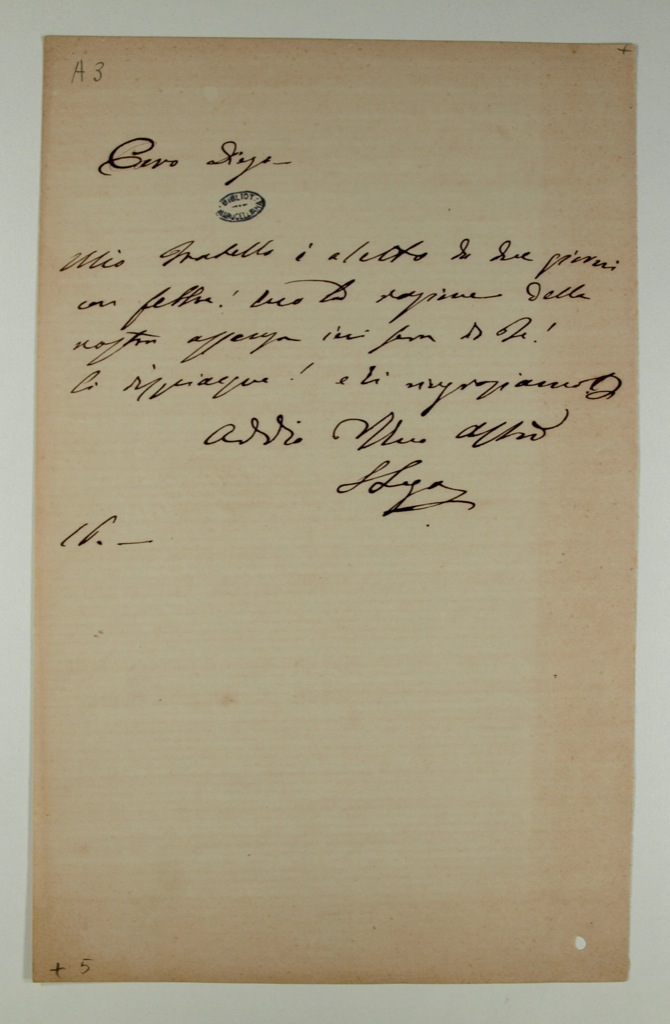 A 3
Caro Diego
BIBLIOT
MARUCELLIANA
Mio fratello è a letto da due giorni
con febbre! ecco la ragione della
nostra assenza ieri sera da te!
Ci dispiacque! e ti ringraziamo
Addio Tuo affmo
SLega
16. —
+ 5